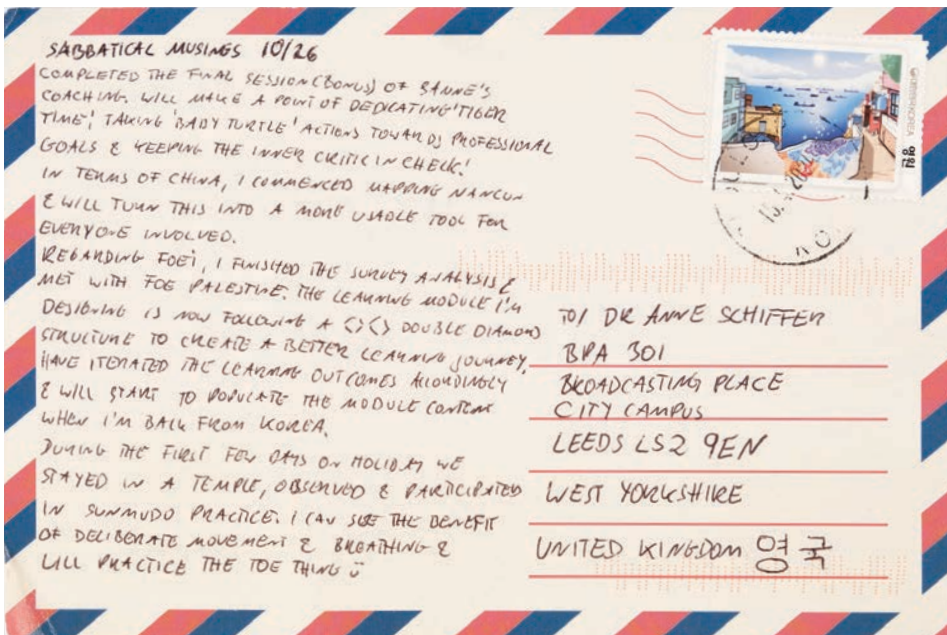 SABBATICAL MUSINGS 10/26
COMPLETED THE FINAL SESSION (BONUS) OF SANNE'S
COACHING. WILL MAKE A POINT OF DEDICATING 'TIGER
TIME', TAKING 'BABY TURTLE' ACTIONS TOWARDS PROFESSIONAL
GOALS & KEEPING THE INNER CRITIC IN CHECK!
IN TERMS OF CHINA, I COMMENCED MAPPING NANCUN
& WILL TURN THIS INTO A MORE USABLE TOOL FOR
EVERYONE INVOLVED.
REGARDING FOEI, I FINISHED THE SURVEY ANALYSIS &
MET WITH FOE PALESTINE. THE LEARNING MODULE I'M
DESIGNING IS NOW FOLLOWING A <><> DOUBLE DIAMOND
STRUCTURE TO CREATE A BETTER LEARNING JOURNEY.
HAVE ITERATED THE LEARNING OUTCOMES ACCORDINGLY
& WILL START TO POPULATE THE MODULE CONTENT
WHEN I'M BACK FROM KOREA.
DURING THE FIRST FEW DAYS ON HOLIDAY WE
STAYED IN A TEMPLE, OBSERVED & PARTICIPATED
IN SUNMUDO PRACTICE. I CAN SEE THE BENEFIT
OF DELIBERATE MOVEMENT & BREATHING &
WILL PRACTICE THE TOE THING
KOREA
TO/ DR ANNE SCHIFFER
BPA 301
BROADCASTING PLACE
CITY CAMPUS
LEEDS LS2 9EN
WEST YORKSHIRE
UNITED KINGDOM 영국